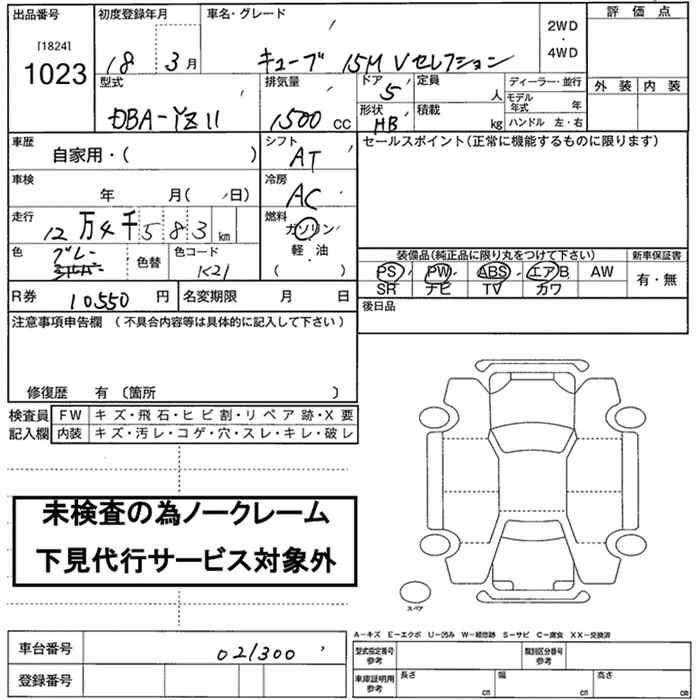 出品番号 初度登録年月 車名・グレード 評価点
[1824] 2WD
1023 18 3月 キューブ 15M Vセレクション ・
4WD
型式 排気量 ドア 5 定員 人 ディーラー・並行 外装 内装
モデル年式 年
DBA-YZ11 1500 cc 形状 HB 積載 kg ハンドル 左・右
車歴 シフト セールスポイント(正常に機能するものに限ります)
自家用・( ) AT
車検 冷房
年 月( 日) AC
走行 燃料
12万4千583km ガソリン
色 グレー シルバー 色替 色コード K21 軽・油
・
( )
装備品(純正品に限り丸をつけて下さい) 新車保証書
PS PW ABS エアB AW 有・無
SR ナビ TV カワ
R券 10550 円 名変期限 月 日 後日品
注意事項申告欄 (不具合内容等は具体的に記入して下さい)
修復歴 有 〔箇所 〕
検査員 FW キズ・飛石・ヒビ割・リペア跡・X要
記入欄 内装 キズ・汚レ・コゲ・穴・スレ・キレ・破レ
未検査の為ノークレーム
下見代行サービス対象外
スペア
A-キズ E-エクボ U-凹み W-補修跡 S-サビ C-腐食 XX-交換済
車台番号 021300 型式指定番号 参考 類別区分番号 参考
登録番号 車庫証明用 参考 長さ cm 幅 cm 高さ cm